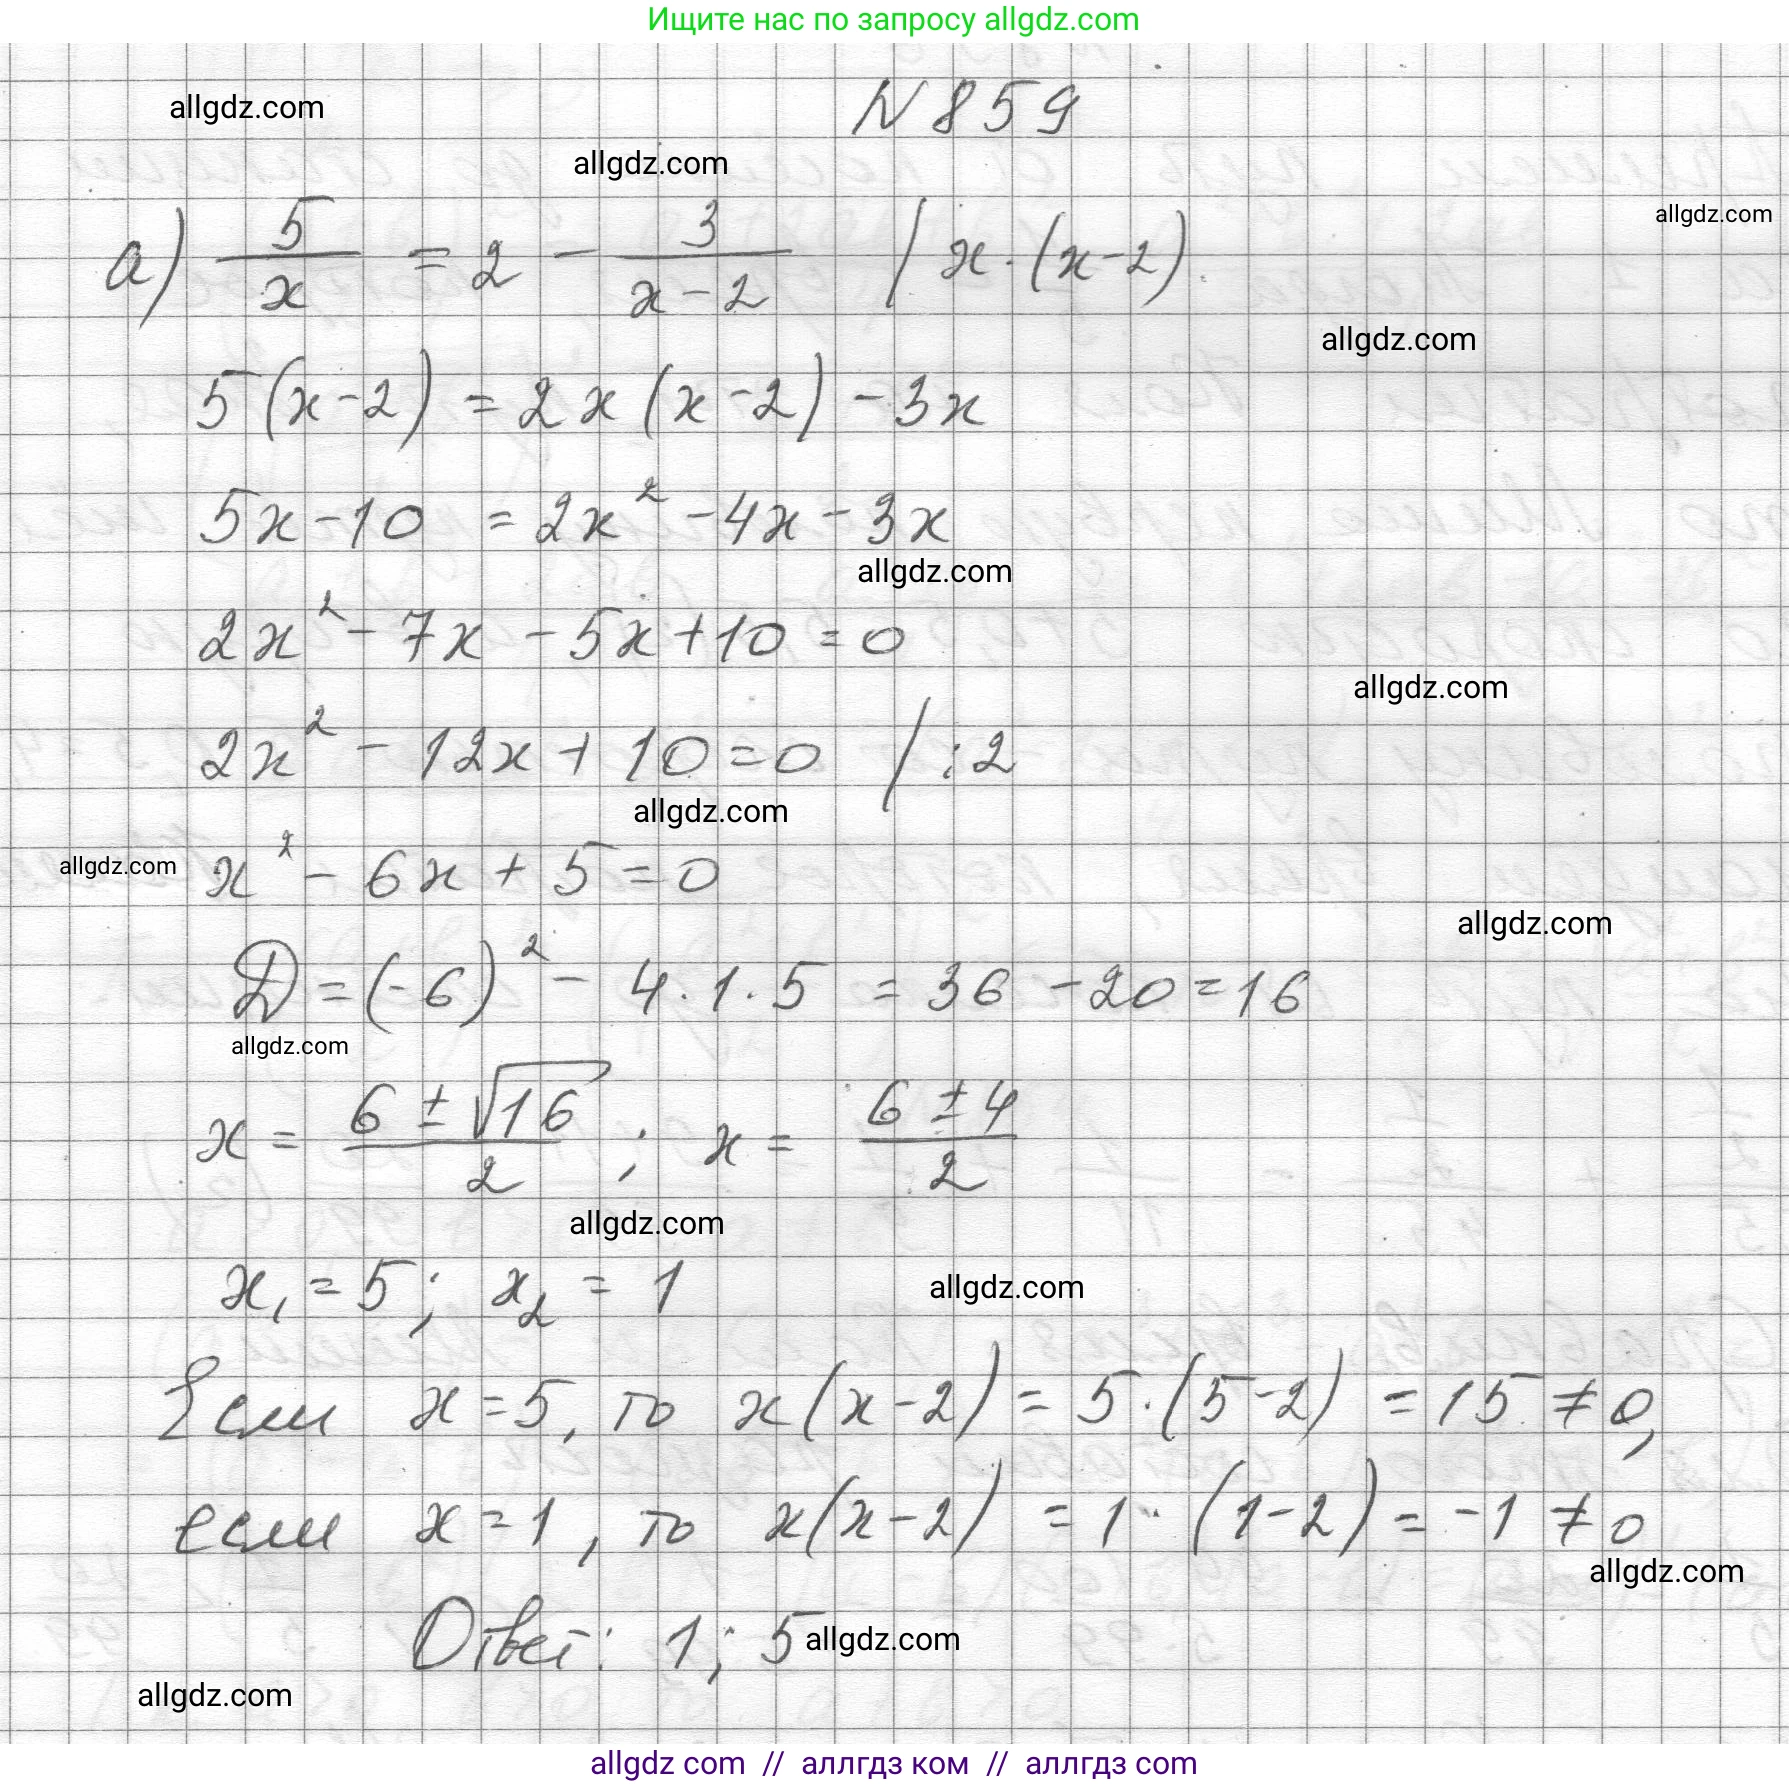 Ищите нас по запросу allgdz.com
N 859
allgdz.com
allgdz.com
allgdz.com
а) 5/x = 2 - 3/(x-2) / x·(x-2)
allgdz.com
5(x-2) = 2x(x-2) - 3x
5x - 10 = 2x² - 4x - 3x
allgdz.com
2x² - 7x - 5x + 10 = 0
allgdz.com
2x² - 12x + 10 = 0 / :2
allgdz.com
allgdz.com
x² - 6x + 5 = 0
allgdz.com
D = (-6)² - 4·1·5 = 36 - 20 = 16
allgdz.com
x = (6 ± √16)/2 ; x = (6 ± 4)/2
allgdz.com
x₁ = 5; x₂ = 1
allgdz.com
Если x = 5, то x(x-2) = 5·(5-2) = 15 ≠ 0,
если x = 1, то x(x-2) = 1·(1-2) = -1 ≠ 0
allgdz.com
Ответ: 1; 5
allgdz.com
allgdz.com
allgdz com // аллгдз ком // аллгдз com